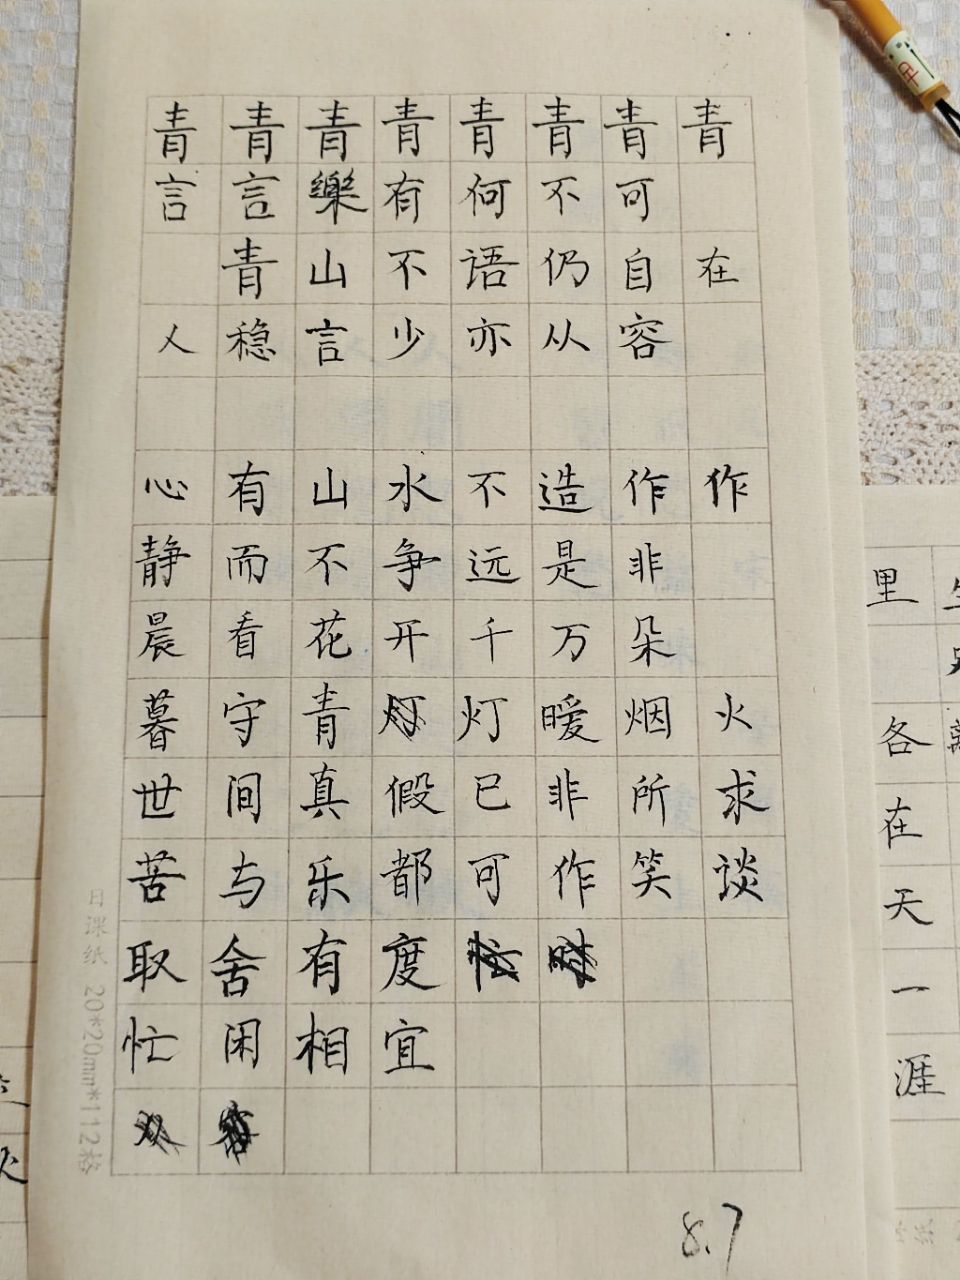 青青青青青青青青
言言樂有何不可
青山不语仍自在
人稳言少亦从容
心有山水不造作作
静而不争远是非
晨看花开千万朵
暮守青灯灯暖烟火
世间真假已非所求
苦与乐都可作笑谈
取舍有度忙
忙闲相宜
8.7
日课纸 20*20mm*112格
里
各
在
天
一
涯